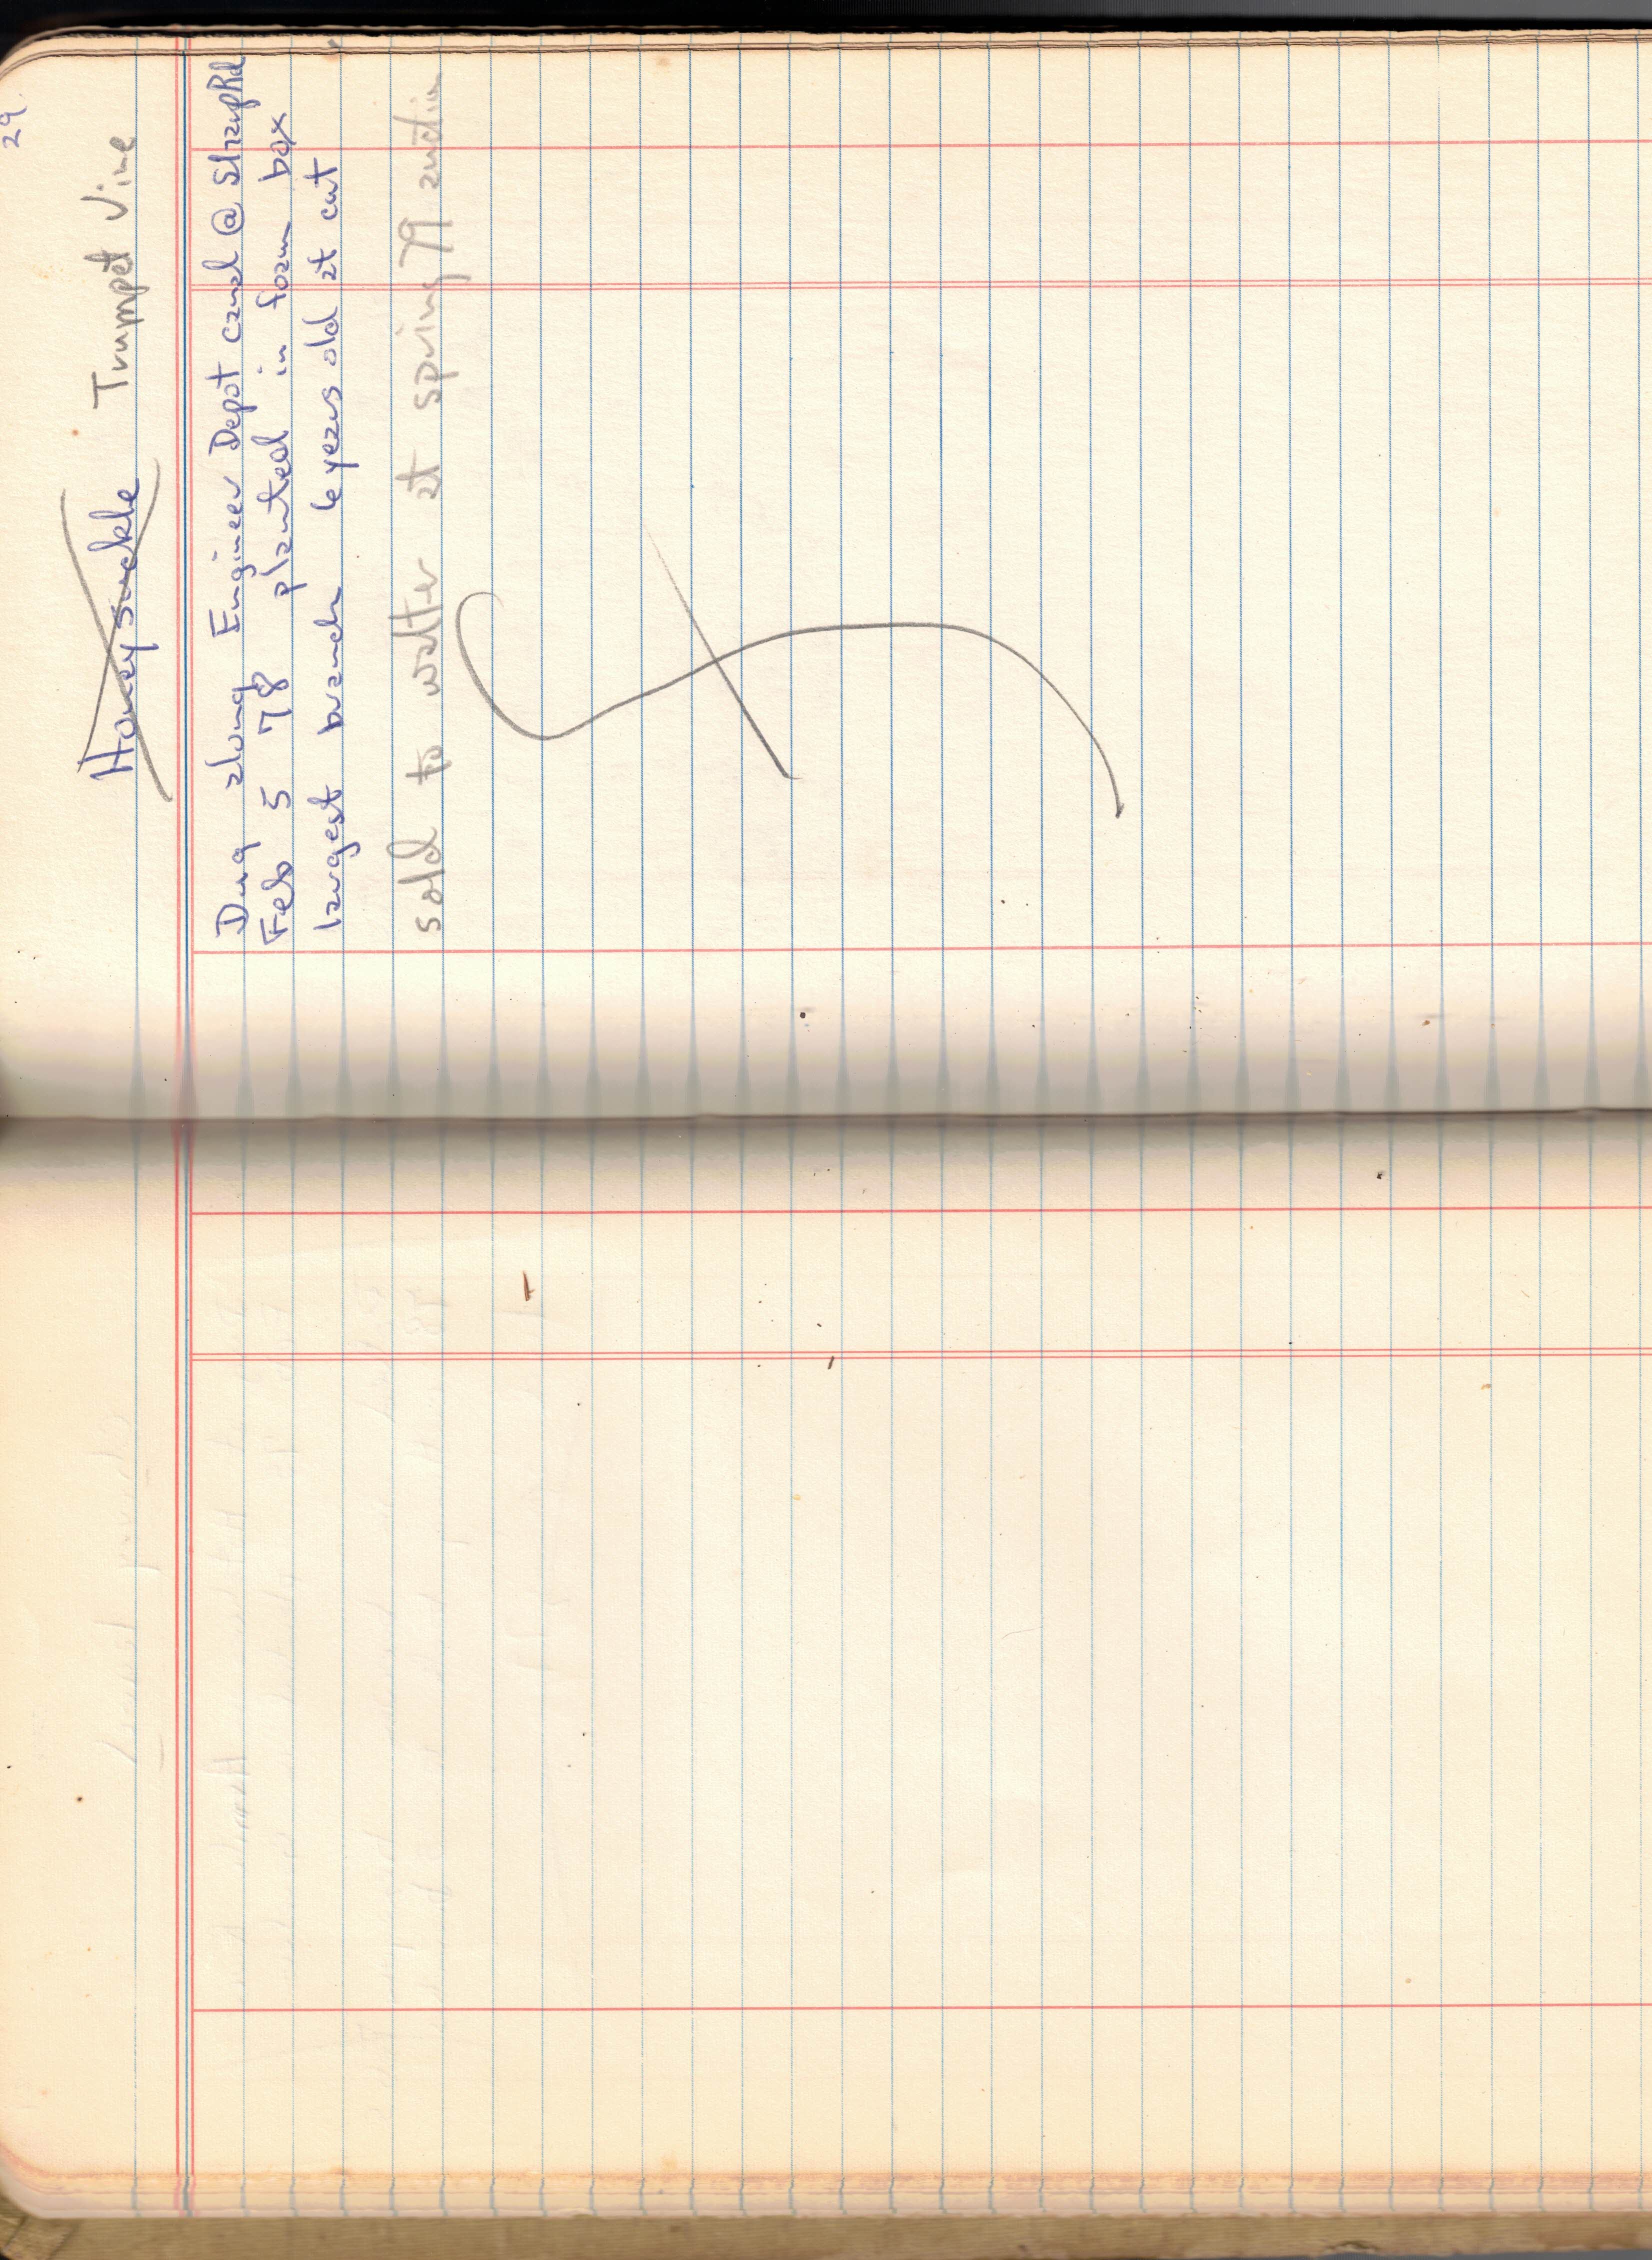 29.
Honeysuckle Trumpet Vine
Dug along Engineer Depot canal @ Rd
Feb 5 78 planted in foam box
largest branch 6 years old at cut
sold to walter at spring 79 auction